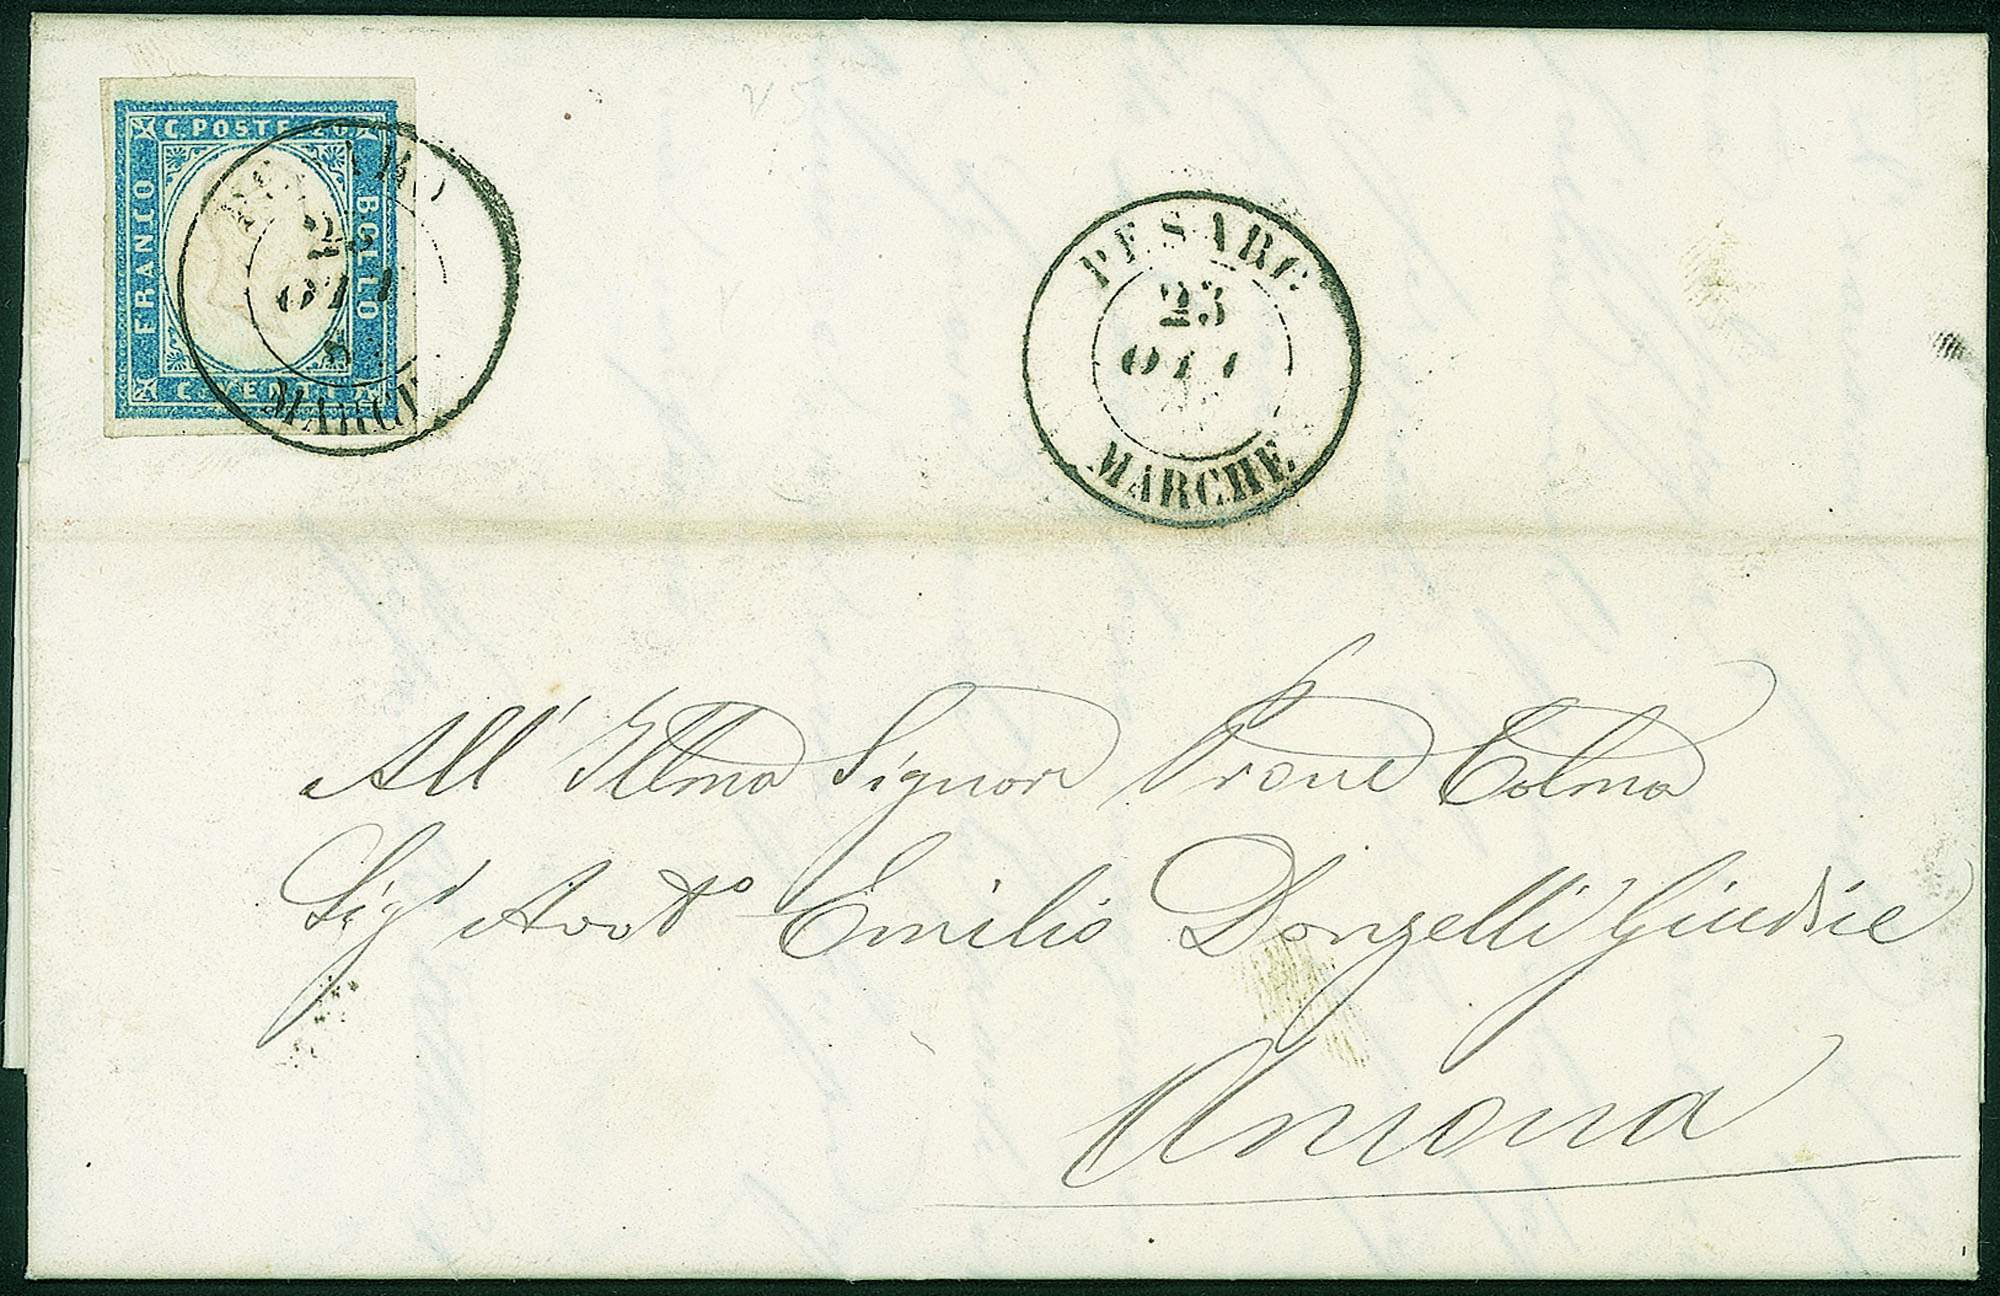 C. POSTE 20
FRANCO
BOLLO
C. VENTI
23
OTT
MARCHE
PESARO
23
OTT
MARCHE
All' Illmo Signor Prone Colmo
Sigr Avvto Emilio Donzelli Giudice
Ancona